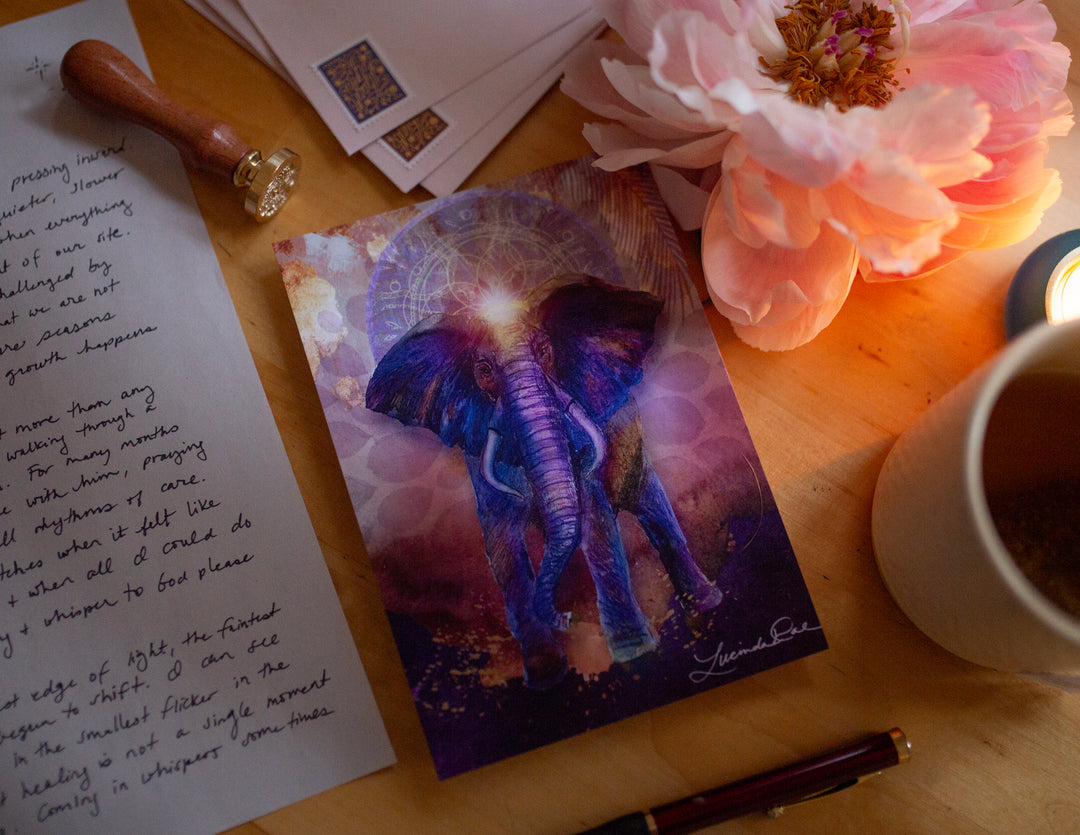 pressing inward.
quieter, slower
when everything
t of our site.
challenged by
hat we are not
are seasons
growth happens
t more than any
walking through a
. For many months
e with him, praying
ll rhythms of care.
tches when it felt like
+ when all I could do
y + whisper to God please
st edge of light, the faintest
begun to shift. I can see
in the smallest flicker in the
t healing is not a single moment
. Coming in whispers sometimes
Lucinda Rae